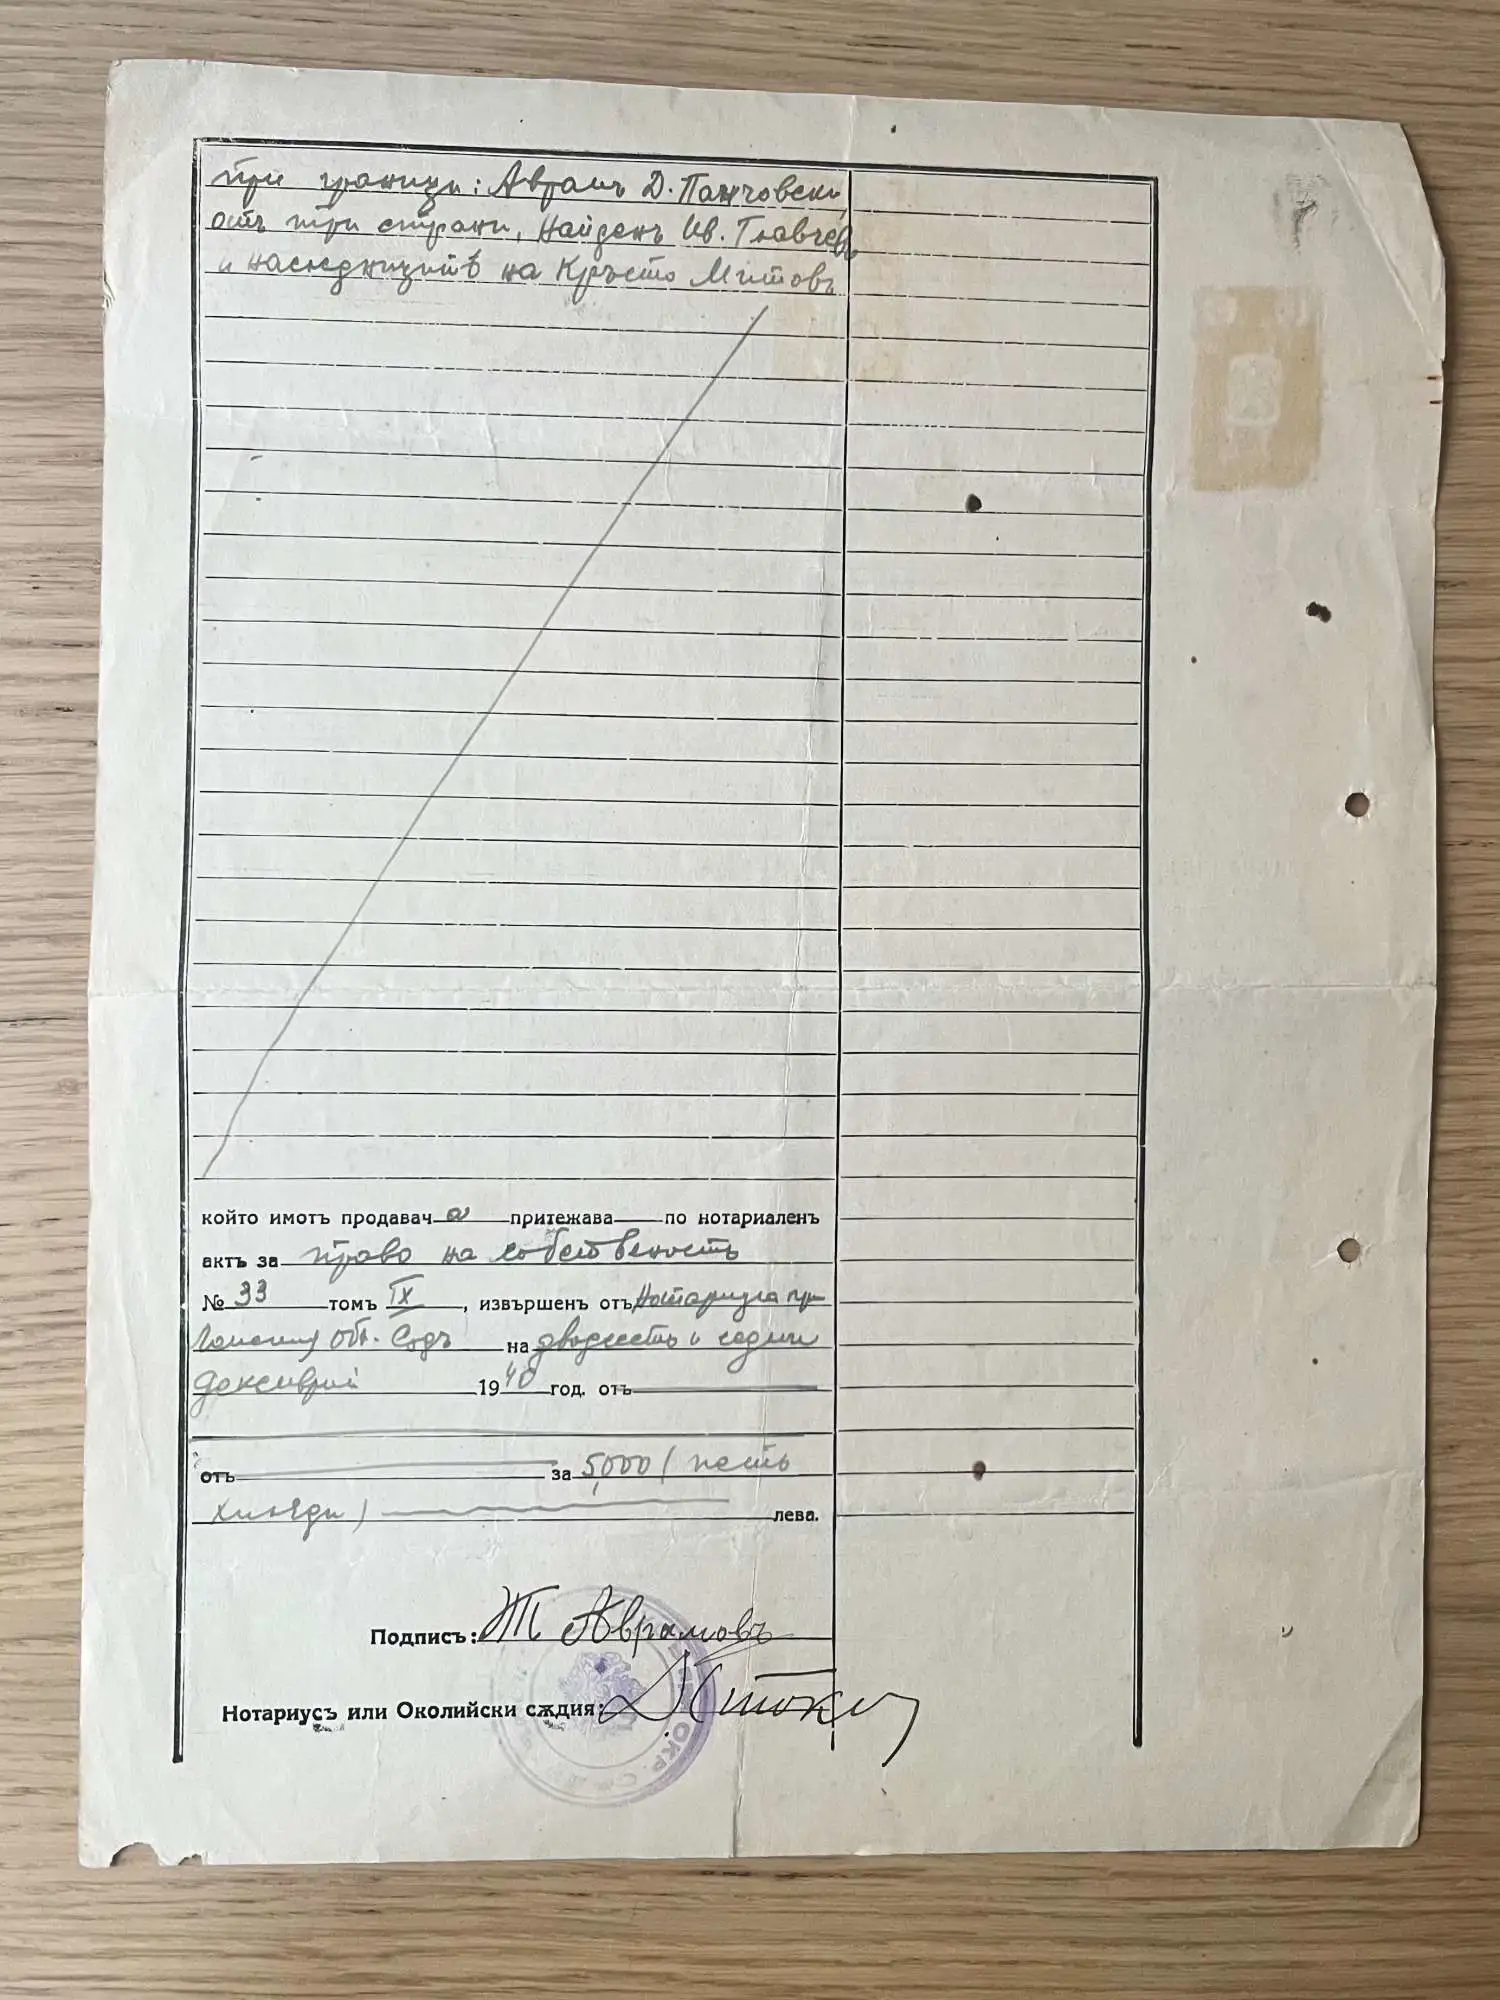 при граници: Аврамъ Д. Панчовски,
отъ три страни, Найденъ Ив. Главчевъ
и наследницитѣ на Кръсто Митовъ
който имотъ продавача притежава по нотариаленъ
актъ за право на собственость
№ 33 томъ IX, извършенъ отъ Нотариуса при
Обл. Сѫдъ на двадесеть и седми
декемврий 1940 год. отъ
отъ за 5,000 (петь
хиляди) лева.
Подпись: Т Аврамовъ
Нотариусъ или Околийски сѫдия:
ОКР. СѪД